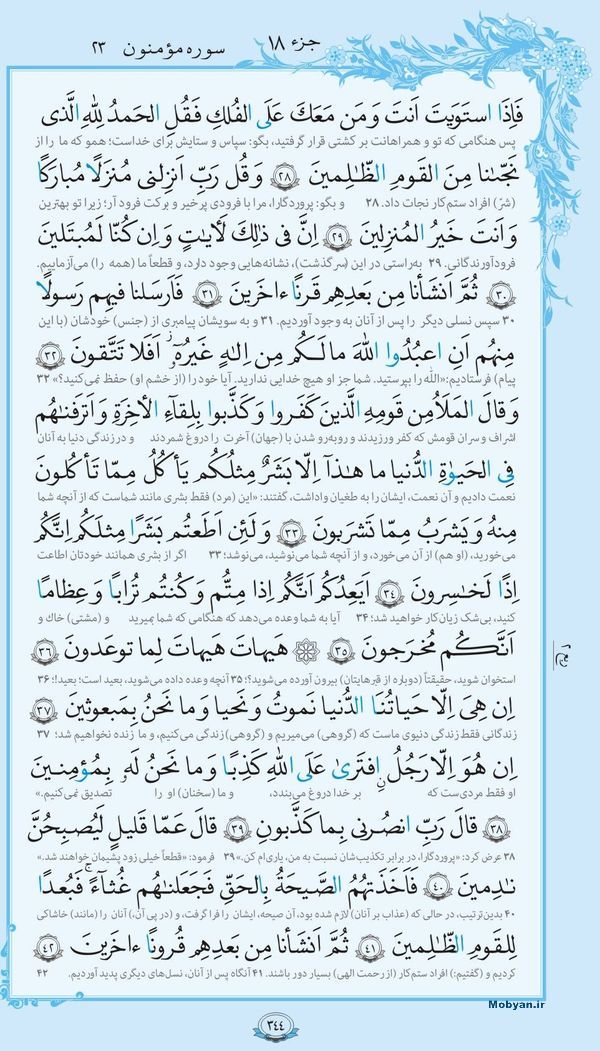 جزء ۱۸
سوره مؤمنون ۲۳
فَاِذَا استَوَیتَ اَنتَ وَ مَن مَعَكَ عَلَی الفُلكِ فَقُلِ الحَمدُ لِلّٰهِ الَّذی
پس هنگامی که تو و همراهانت بر کشتی قرار گرفتید، بگو: سپاس و ستایش برای خداست؛ همو که ما را از
نَجّٰىنا مِنَ القَومِ الظّٰلِمینَ ﴿۲۸﴾ وَ قُل رَبِّ اَنزِلنی مُنزَلًا مُبارَکًا
(شرّ) افراد ستم‌کار نجات داد. ۲۸ و بگو: پروردگارا، مرا با فرودی پرخیر و برکت فرود آر؛ زیرا تو بهترین
وَ اَنتَ خَیرُ المُنزِلینَ ﴿۲۹﴾ اِنَّ فی ذٰلِكَ لَأٰیاتٍ وَ اِن کُنّا لَمُبتَلینَ
فرودآورندگانی. ۲۹ به‌راستی در این (سرگذشت)، نشانه‌هایی وجود دارد، و قطعاً ما (همه را) می‌آزماییم.
﴿۳۰﴾ ثُمَّ اَنشَأنا مِن بَعدِهِم قَرنًا ءاخَرینَ ﴿۳۱﴾ فَاَرسَلنا فیهِم رَسولًا
۳۰ سپس نسلی دیگر را پس از آنان به وجود آوردیم. ۳۱ و به سویشان پیامبری از (جنس) خودشان (با این
مِنهُم اَنِ اعبُدُوا اللّٰهَ ما لَکُم مِن اِلٰهٍ غَیرُهُ اَفَلا تَتَّقونَ ﴿۳۲﴾
پیام) فرستادیم: «الله را بپرستید. شما جز او هیچ خدایی ندارید. آیا خود را (از خشم او) حفظ نمی‌کنید؟» ۳۲
وَ قالَ المَلَاُ مِن قَومِهِ الَّذینَ کَفَروا وَ کَذَّبوا بِلِقاءِ الأخِرَةِ وَ اَترَفنٰهُم
اشراف و سران قومش که کفر ورزیدند و روبه‌رو شدن با (جهان) آخرت را دروغ شمردند و در زندگی دنیا به آنان
فِی الحَیوٰةِ الدُّنیا ما هٰذا اِلّا بَشَرٌ مِثلُکُم یَأکُلُ مِمّا تَأکُلونَ
نعمت دادیم و آن نعمت، ایشان را به طغیان واداشت، گفتند: «این (مرد) فقط بشری مانند شماست که از آنچه شما
مِنهُ وَ یَشرَبُ مِمّا تَشرَبونَ ﴿۳۳﴾ وَ لَئِن اَطَعتُم بَشَرًا مِثلَکُم اِنَّکُم
می‌خورید، (او هم) از آن می‌خورد، و از آنچه شما می‌نوشید، می‌نوشد؛ ۳۳ اگر از بشری همانند خودتان اطاعت
اِذًا لَخٰسِرونَ ﴿۳۴﴾ اَیَعِدُکُم اَنَّکُم اِذا مِتُّم وَ کُنتُم تُرابًا وَ عِظامًا
کنید، بی‌شک زیان‌کار خواهید شد؛ ۳۴ آیا به شما وعده می‌دهد که هنگامی که شما بمیرید و (مشتی) خاک و
اَنَّکُم مُخرَجونَ ﴿۳۵﴾ هَیهاتَ هَیهاتَ لِما توعَدونَ ﴿۳۶﴾
استخوان شوید، حقیقتاً (دوباره از قبرهایتان) بیرون آورده می‌شوید؟! ۳۵ آنچه وعده داده می‌شوید، بعید است؛ بعید!؛ ۳۶
اِن هِیَ اِلّا حَیاتُنَا الدُّنیا نَموتُ وَ نَحیا وَ ما نَحنُ بِمَبعوثینَ ﴿۳۷﴾
زندگانی فقط زندگی دنیوی ماست که (گروهی) می‌میریم و (گروهی) زندگی می‌کنیم، و ما زنده نخواهیم شد؛ ۳۷
اِن هُوَ اِلّا رَجُلٌ افتَریٰ عَلَی اللّٰهِ کَذِبًا وَ ما نَحنُ لَهُ بِمُؤمِنینَ
او فقط مردی‌ست که بر خدا دروغ می‌بندد، و ما (سخنان) او را تصدیق نمی‌کنیم.»
﴿۳۸﴾ قالَ رَبِّ انصُرنی بِما کَذَّبونِ ﴿۳۹﴾ قالَ عَمّا قَلیلٍ لَیُصبِحُنَّ
۳۸ عرض کرد: «پروردگارا، در برابر تکذیب‌شان نسبت به من، یاری‌ام کن.» ۳۹ فرمود: «قطعاً خیلی زود پشیمان خواهند شد.»
نٰدِمینَ ﴿۴۰﴾ فَاَخَذَتهُمُ الصَّیحَةُ بِالحَقِّ فَجَعَلنٰهُم غُثاءً فَبُعدًا
۴۰ بدین‌ترتیب، در حالی که (عذاب بر آنان) لازم شده بود، آن صیحه، ایشان را فرا گرفت، و (در پی آن)، آنان را (مانند) خاشاکی
لِلقَومِ الظّٰلِمینَ ﴿۴۱﴾ ثُمَّ اَنشَأنا مِن بَعدِهِم قُرونًا ءاخَرینَ ﴿۴۲﴾
کردیم و (گفتیم:) افراد ستم‌کار (از رحمت الهی) بسیار دور باشند. ۴۱ آنگاه پس از آنان، نسل‌های دیگری پدید آوردیم. ۴۲
۳۴۴
Mobyan.ir